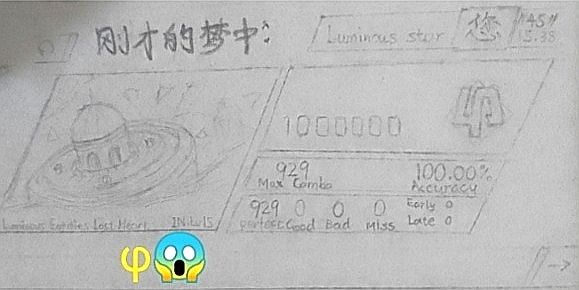 刚才的梦中:
Luminous star 您 "45" 15.38
1000000
929 100.00%
Max Combo Accuracy
929 0 0 0 Early 0
perfect Good Bad Miss Late 0
Lost Heart IN Lv.15
φ